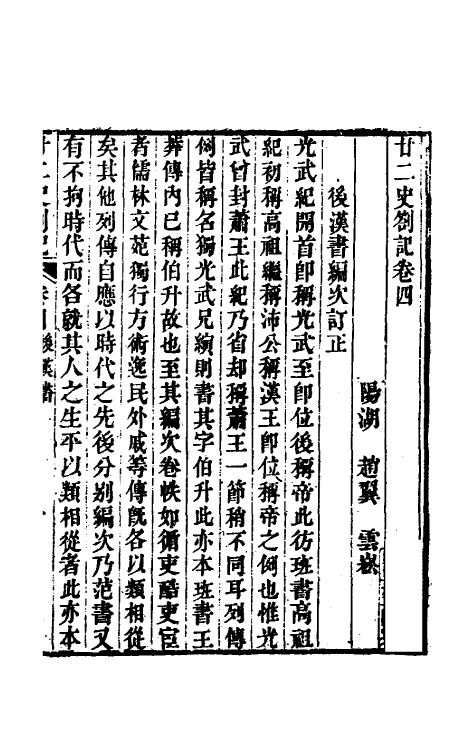 廿二史劄記卷四
陽湖 趙翼 雲崧
後漢書編次訂正
光武紀開首卽稱光武至卽位後稱帝此彷班書高祖
紀初稱高祖繼稱沛公稱漢王卽位稱帝之例也惟光
武曾封蕭王此紀乃省却稱蕭王一節稍不同耳列傳
例皆稱名獨光武兄縯則書其字伯升此亦本班書王
莽傳內已稱伯升故也至其編次卷帙如循吏酷吏宦
者儒林文苑獨行方術逸民外戚等傳旣各以類相從
矣其他列傳自應以時代之先後分別編次乃范書又
有不拘時代而各就其人之生平以類相從者此亦本
廿二史劄記 卷四 後漢書